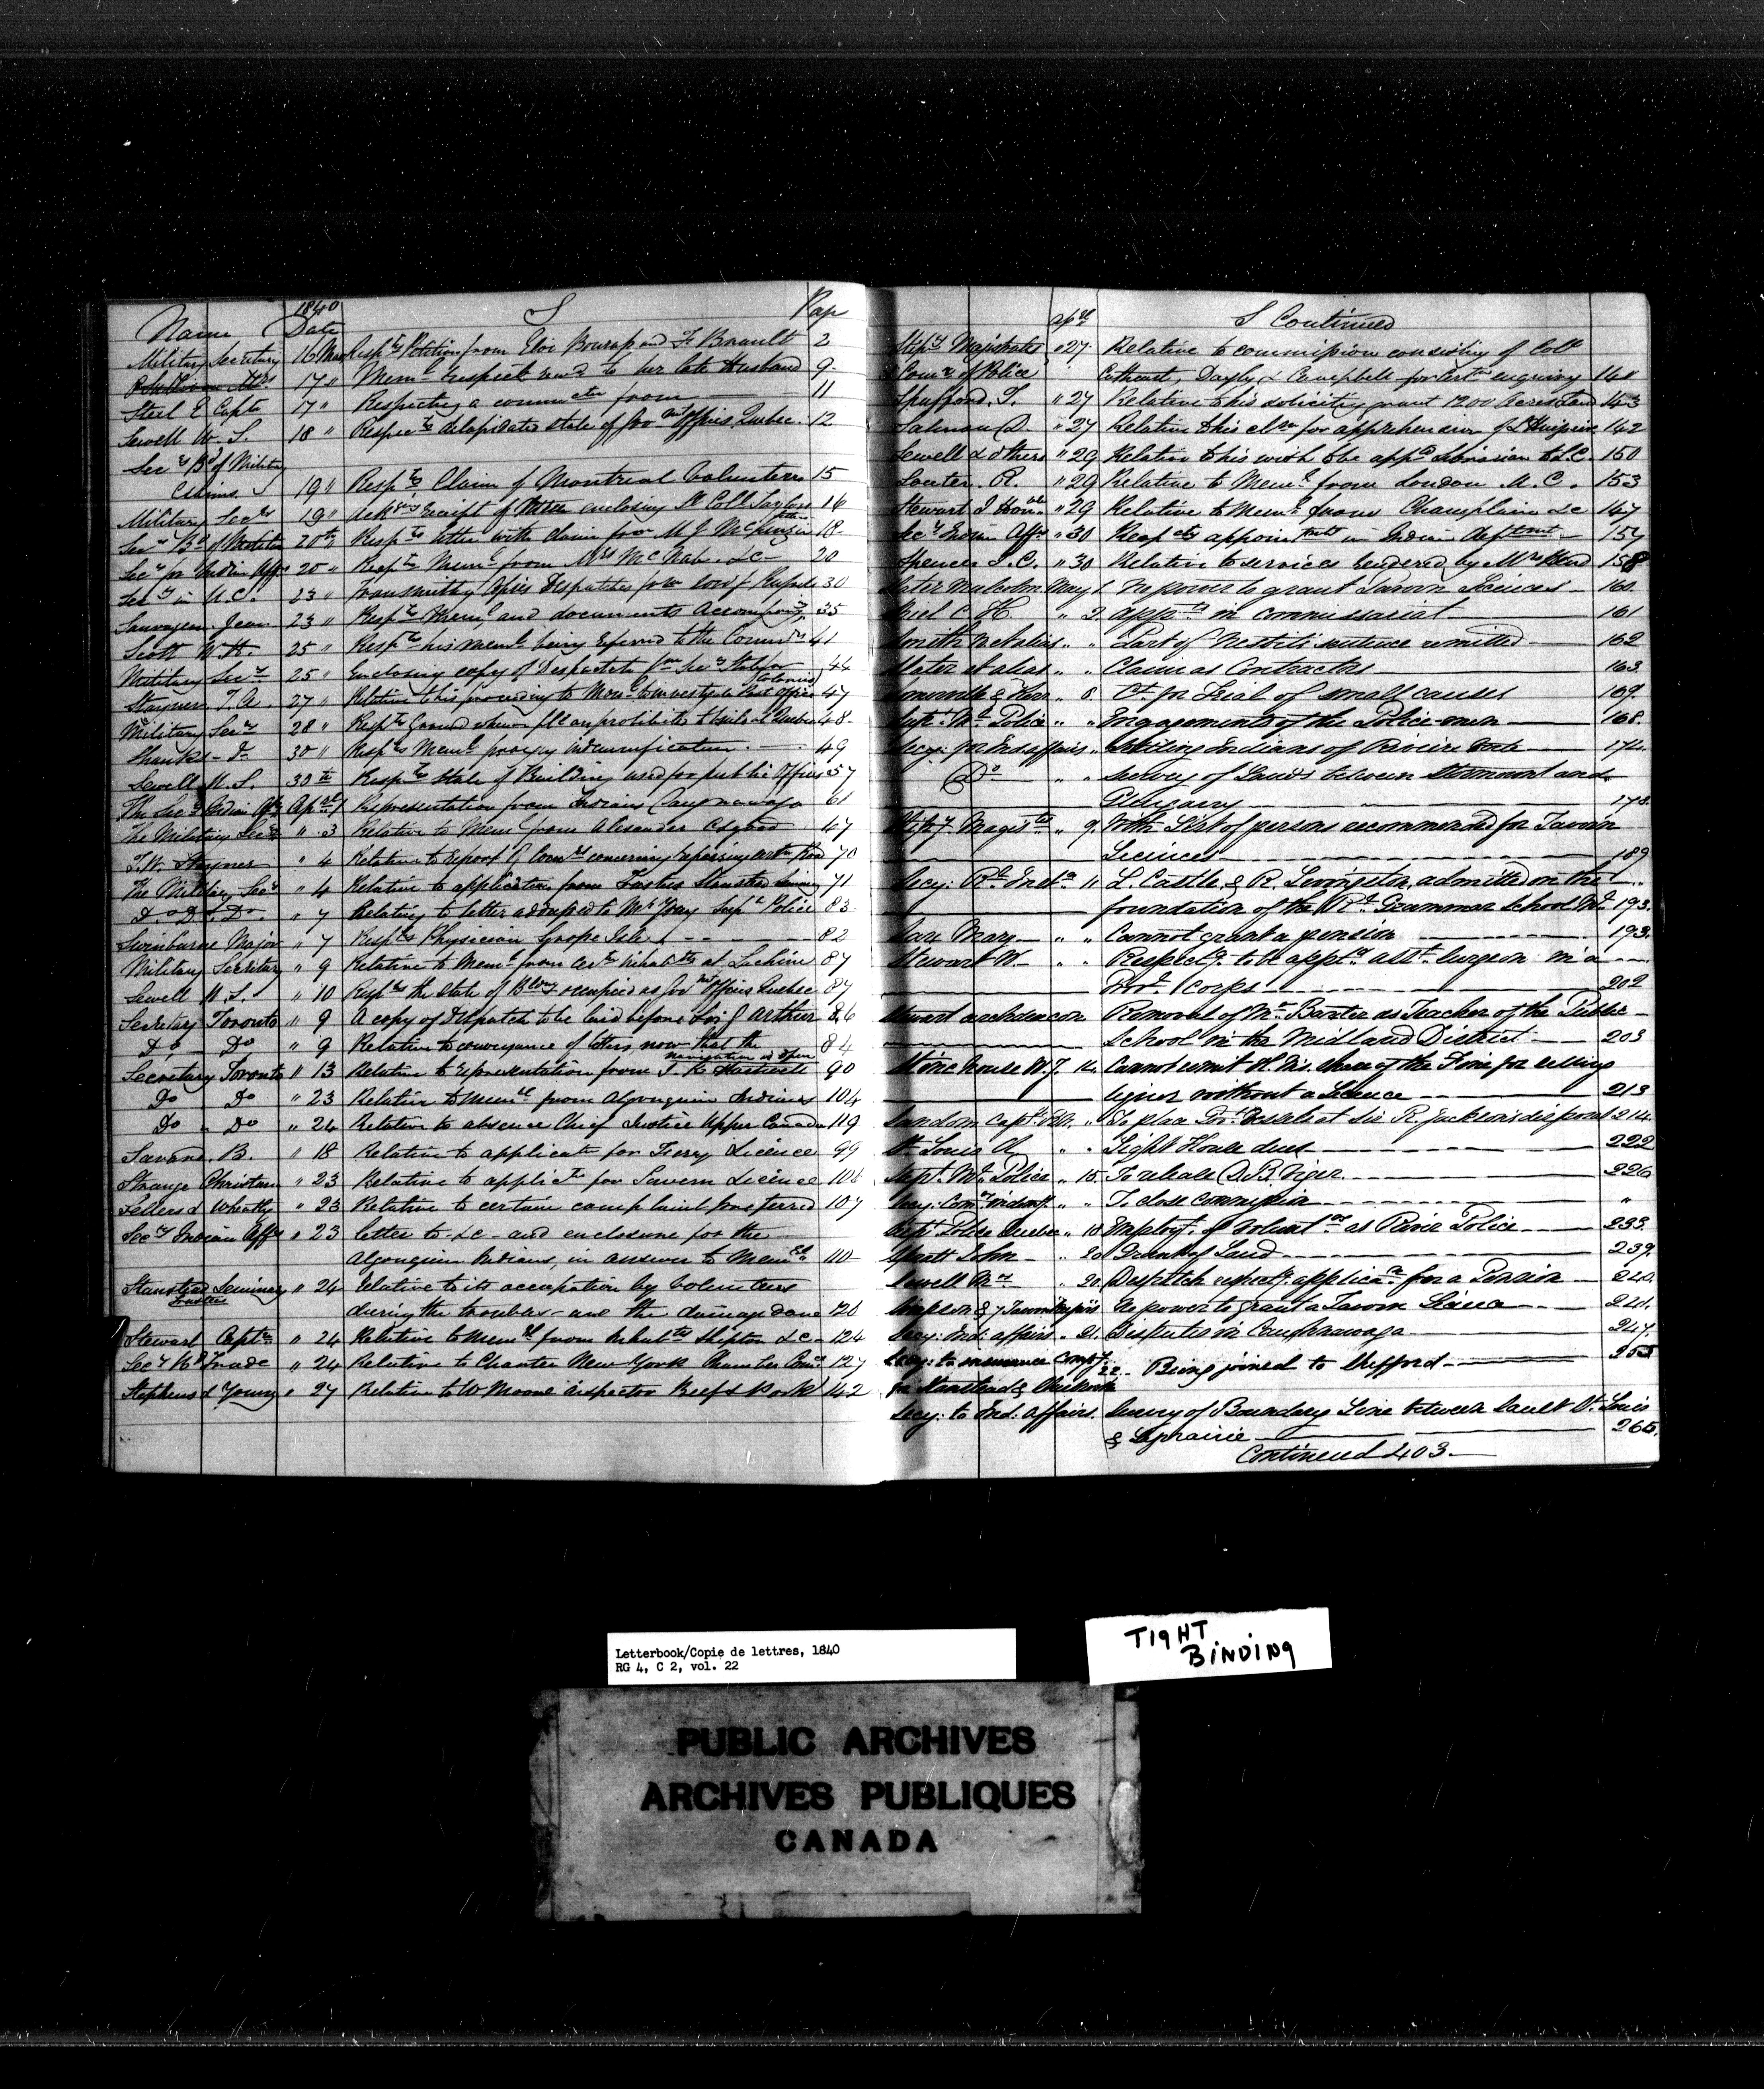 Name 1840 Date S Page
Military Secretary 16 Mar Respg Petition from Eloi Bourap and F. Brault 2
17 " Meml respect to her late Husband 9
Steel E Capt 17 " Respecting a commutn from 11
Sewell W. S. 18 " Respectg delapidated state of Govt Offices Quebec 12
Secy Bd of Military
Claims 19 " Respg Claim of Montreal Volunteers 15
Military Secy 19 " Ackg receipt of letter enclosing Lt Coll Taylors 16
Secy Bd of Militia 20th " Respg letter with claim for M J McKenzie 18
Secy for Indian Affs 20 " Respg Meml from Mrs McNab &c 20
Secy in U.C. 23 " Transmitting Despatches 30
Sauvageau Jean 23 " Respg Meml and documents accompang 35
Scott W. H. 25 " Respg his meml being referred to the Commrs 41
Military Secy 25 " Enclosing copy of Despatch from Secy State for Colonies 44
Stayner T. A. 27 " Relative to his proceeding to Monl to investigate Post office 47
Military Secy 28 " Respg Ground Quebec 48
Shanks D. 30 " Respg Meml praying indemnification 49
Sewell W. S. 30th Respg State of Building used for public Offices 57
The Secy Indian Affs April 1 Representation from Indians Caughnawaga 61
The Military Secy " 3 Relative to Meml from Alexander Osgood 67
T. W. Stayner " 4 Relative to report of Comrs concerning repairing certn Road 70
The Military Secy " 4 Relative to application from Trustees Stanstead Seminy 71
Do Do Do " 7 Relating to letter addressed to Mr Gray Supt Police 83
Swinburne Major " 7 Respg Physician Grosse Isle 82
Military Secretary " 9 Relative to Meml from certn inhabts at Lachine 87
Sewell W. S. " 10 Respg the state of Bldgs occupied as Govt Offices Quebec 87
Secretary Toronto " 9 A copy of Despatch to be laid before Sir G Arthur 86
Do Do " 9 Relative to conveyance of letters now that the navigation is open 84
Secretary Toronto " 13 Relative to representation from J. K. Hartwell 90
Do Do " 23 Relative to meml from Algonquin Indians 104
Do Do " 24 Relative to absence Chief Justice Upper Canada 119
Savane B. " 18 Relative to applicatn for Ferry Licence 99
Strange Christian " 23 Relative to applictn for Tavern Licence 106
Sellers & Wheatly " 23 Relative to certain complaint preferred 107
Secy Indian Affs " 23 letter to &c and enclosure for the
Algonquin Indians, in answer to Meml 110
Stanstead Seminary Trustees " 24 relative to its occupation by volunteers
during the troubles and the damage done 120
Stewart Captn " 24 Relative to Meml from inhabts Shipton &c 124
Secy Bd Trade " 24 Relative to Charter New York Chamber Come 127
Stephens & Young " 27 Relative to W Moore inspector Beef & Pork 142
Apl S Continued
Stipy Magistrates " 27 Relative to commission consisting of Coll
& Comr of Police Cathcart, Dayly & Campbell for certn enquiry 141
Spafford. T. " 27 Relative to his soliciting grant 1200 Acres Land 143
Salmon D. " 27 Relative to his for apprehension of 142
Sewell & others " 29 Relative to his wish to be appd Librarian to L.C. 150
Souter. R. " 29 Relative to Meml from London U. C. 153
Stewart J Honble " 29 Relative to Meml from Champlain &c 147
Secy Indian Affs " 30 Respectg appointmts in Indian deptmt 157
Spencer J. C. " 30 Relative to services rendered by Mr Head 158
Slater Malcolm May 1 No power to grant Tavern Licences 160
C. H. " 2 appts in commissariat 161
Smith " " Part of Nesbitt's sentence remitted 162
Slater et alias " " Claim as Contractors 163
Somerville & Kerr " 8 Ct for Trial of small causes 169
Supt Ml Police " " Engagements of the Police-men 168
Secy for Ind affairs " Settling Indians of Riviere 174
Do " " Survey of Lands between Stormount and
Glengarry 178
Stipy Magists " 9 With List of persons recommended for Tavern
Licences 189
Secy Rl Instn " 11 L. Castle & R. Levingston, admitted on the
foundation of the Rl Grammar School Ml 193
Mary " " Cannot grant a pension 193
Stewart W. " " Respectg to be apptd asst Surgeon in a
Provl Corps 202
Stewart archdeacon Removal of Mr Baxter as Teacher of the Public
School in the Midland District 203
Stonehouse W. J. 14 Cannot remit H. M's share of the Fine for selling
liquor without a Licence 213
Sandom Captn " To place Provl at Sir R. Jackson's disposal 214
St Louis " Light House dues 222
Supt Ml Police " 15 To release D. B. Viger 226
Secy Com " " To close commission "
Supt Police Quebec " 18 Employt of volunts as River Police 233
John " 20 Grant of Land 239
Sewell Mrs " 20 Despatch respectg applican for a Pension 240
Simpson & 7 Tavern keepers No power to grant a Tavern Licence 241
Secy: Ind: affairs " 21 Disputes in Caughnawaga 247
Secy: to insurance Compy 22 Being joined to Shefford 255
for Stanstead &
Secy: to Ind: affairs Survey of Boundary Line between Sault St Louis
& Laprairie 265
Continued 403
Letterbook/Copie de lettres, 1840
RG 4, C 2, vol. 22
TIGHT
BINDING
PUBLIC ARCHIVES
ARCHIVES PUBLIQUES
CANADA